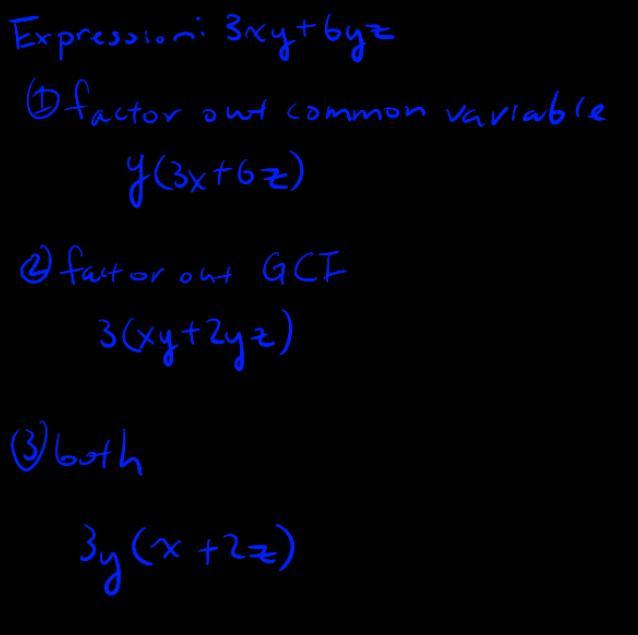 Expression: 3xy+6yz
① factor out common variable
y(3x+6z)
② factor out GCI
3(xy+2yz)
③ both
3y(x+2z)